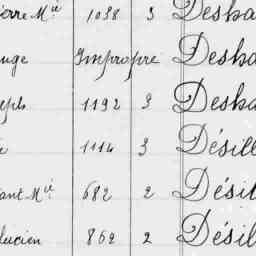 ierre Mie 1038 3 Deska
uge Impropre Deska
seph 1192 3 Deska
e 1114 3 Désill
ant Mie 682 2 Désil
lucien 862 2 Désil